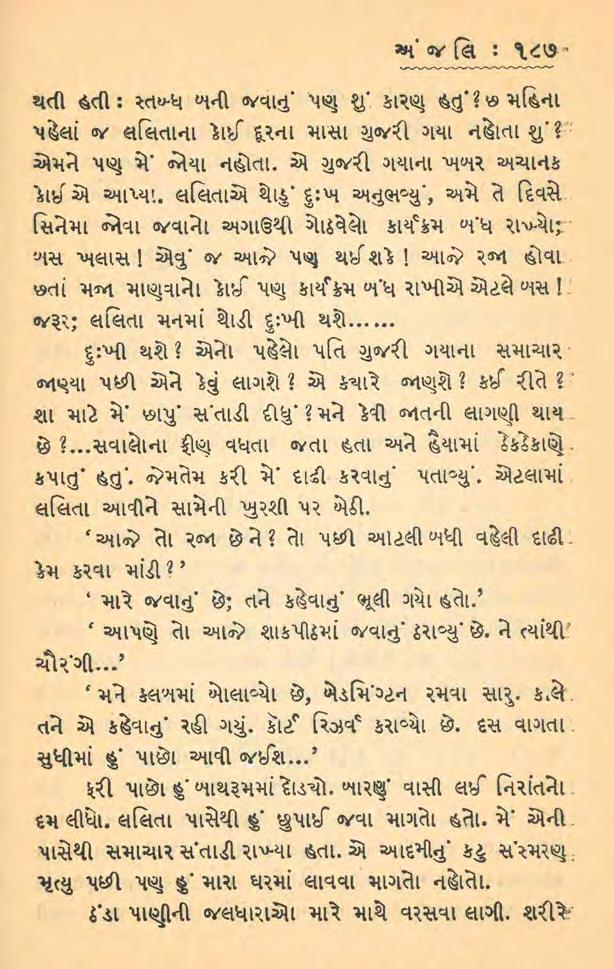 અંજલિ : ૧૮૭
થતી હતી : સ્તબ્ધ બની જવાનું પણ શું કારણ હતું? છ મહિના
પહેલાં જ લલિતાના કોઈ દૂરના માસા ગુજરી ગયા નહોતા શું ?
એમને પણ મેં જોયા નહોતા. એ ગુજરી ગયાના ખબર અચાનક
કોઈ એ આપ્યા. લલિતાએ થોડું દુઃખ અનુભવ્યું, અમે તે દિવસે
સિનેમા જોવા જવાનો અગાઉથી ગોઠવેલો કાર્યક્રમ બંધ રાખ્યો;
બસ ખલાસ ! એવું જ આજે પણ થઈ શકે ! આજે રજા હોવા
છતાં મજા માણવાનો કોઈ પણ કાર્યક્રમ બંધ રાખીએ એટલે બસ !
જરૂર; લલિતા મનમાં થોડી દુઃખી થશે......
દુઃખી થશે ? એનો પહેલો પતિ ગુજરી ગયાના સમાચાર
જાણ્યા પછી એને કેવું લાગશે ? એ ક્યારે જાણશે ? કઈ રીતે ?
શા માટે મેં છાપું સંતાડી દીધું ? મને કેવી જાતની લાગણી થાય
છે ?...સવાલોના ફીણ વધતા જતા હતા અને હૈયામાં ઠેકઠેકાણે
કપાતું હતું. જેમતેમ કરી મેં દાઢી કરવાનું પતાવ્યું. એટલામાં
લલિતા આવીને સામેની ખુરશી પર બેઠી.
‘ આજે તો રજા છેને ? તો પછી આટલી બધી વહેલી દાઢી
કેમ કરવા માંડી ? ’
‘ મારે જવાનું છે; તને કહેવાનું ભૂલી ગયો હતો.’
‘ આપણે તો આજે શાકપીઠમાં જવાનું ઠરાવ્યું છે. ને ત્યાંથી
ચૌરંગી...’
‘ મને કલબમાં બોલાવ્યો છે, બેડમિંગ્ટન રમવા સારુ. કાલે
તને એ કહેવાનું રહી ગયું. કોર્ટ રિઝર્વ કરાવ્યો છે. દસ વાગતા
સુધીમાં હું પાછો આવી જઈશ...’
ફરી પાછો હું બાથરૂમમાં દોડયો. બારણું વાસી લઈ નિરાંતનો
દમ લીધો. લલિતા પાસેથી હું છુપાઈ જવા માગતો હતો. મેં એની
પાસેથી સમાચાર સંતાડી રાખ્યા હતા. એ આદમીનું કટુ સંસ્મરણ
મૃત્યુ પછી પણ હું મારા ઘરમાં લાવવા માગતો નહોતો.
ઠંડા પાણીની જલધારાઓ મારે માથે વરસવા લાગી. શરીરે